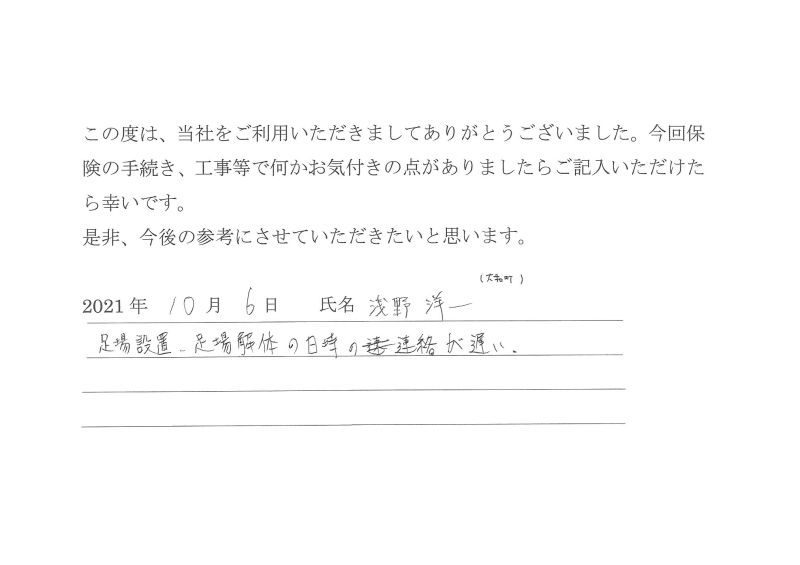 この度は、当社をご利用いただきましてありがとうございました。今回保
険の手続き、工事等で何かお気付きの点がありましたらご記入いただけた
ら幸いです。
是非、今後の参考にさせていただきたいと思います。
(大和町)
2021年 10月 6日 氏名 浅野 洋一
足場設置、足場解体の日時の連絡が遅い。